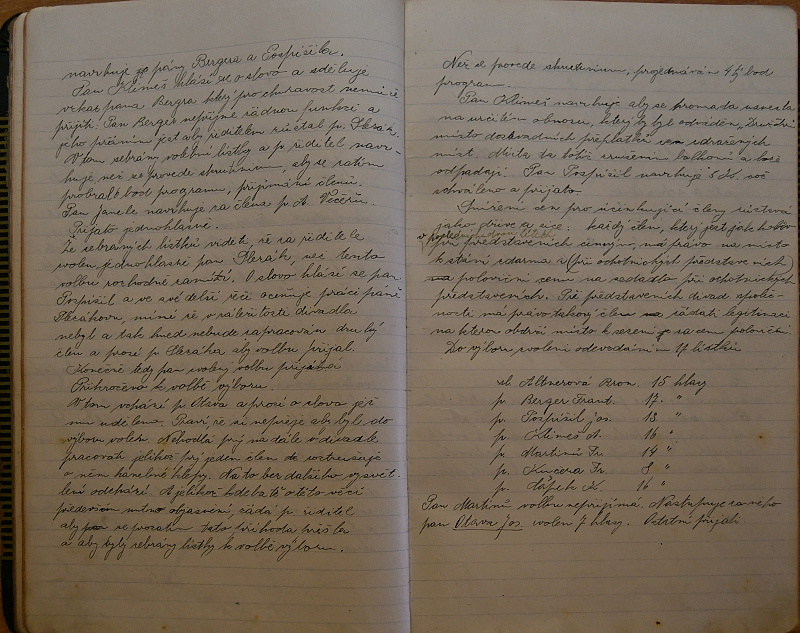 navrhuje pány Bergera a Pospíšila.
Pan Klimeš hlásí se o slovo a sděluje
vzkaz pana Bergra který pro churavost nemůže
přijíti. Pan Berger nepřijme žádnou funkci a
jeho přáním jest aby ředitelem zůstal p. Slezák.
V tom sebrány volební lístky a p. ředitel navr-
huje, než se provede skrutinium, aby se zatím
probral bod programu, přijímání členů.
Pan Janele navrhuje za člena p. A. Večeřu.
Přijato jednohlasně.
Ze sebraných lístků viděti, že za ředitele
zvolen jednohlasně pan Slezák, než tento
volbu rozhodně zamítá. O slovo hlásí se pan
Pospíšil a ve své delší řeči oceňuje práci páně
Slezákovu, míní že v záležitosti divadla
nebyl a tak hned nebude zapracován druhý
člen a prosí p. Slezáka aby volbu přijal.
Konečně tedy pan zvolený volbu přijímá
Přikročeno k volbě výboru.
V tom vchází p. Otava a prosí o slovo jež
mu uděleno. Praví, že si nepřeje aby byl do
výboru volen. Nehodlá prý na dále v divadle
pracovati jelikož prý jeden člen do roztrušuje
o něm hanebné klepy. Na to bez dalšího vysvět-
lení odchází. A jelikož debatě o této věci
především nutno objasnění, žádá p. ředitel
aby se prozatím tato příhoda přešla
a aby byly sebrány lístky k volbě výboru.
Než se provede skrutinium, projednáván 4tý bod
program.
Pan Klimeš navrhuje aby se promada usnesla
na určitém obnosu, který by byl odváděn „Družstvu
místo dosavadních přeplatků zdražených
míst. Místa ta totiž zrušením balkonu a lóže
odpadají. Pan Pospíšil navrhuje 5 K. což
schváleno a přijato
Snížení cen pro účinkující členy zůstává
jako dříve a sice: každý člen, který jest jakkoliv
při představeních činným, má právo na místo
k stání zdarma a (při ochotnických představeních)
poloviční cenu na sedadla při ochotnických
představeních. Při představeních divad. společ-
ností má právo takový člen žádati legitimaci
na kterou obdrží místo k sezení za cenu poloviční.
Do výboru zvoleni odevzdáním 17 lístků
sl. Altnerová Bron. 15 hlasy
p. Berger Frant. 17. "
p. Pospíšil Jos. 13 "
p. Klimeš A. 16 "
p. Martinů Fr. 14 "
p. Kučera Fr. 8 "
p. Čápek K. 16 "
Pan Martinů volbu nepřijímá. Nastupuje za něho
pan Otava Jos. zvolen 7 hlasy. Ostatní přijali